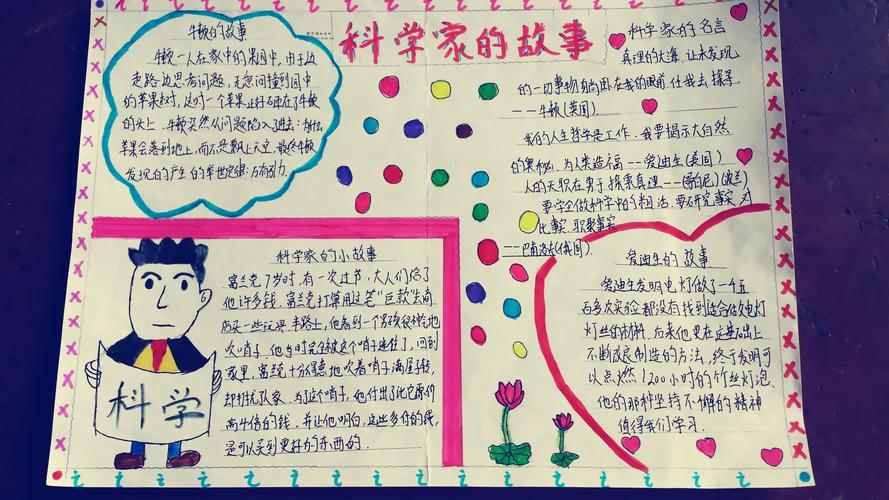 科学家的故事
牛顿的故事
牛顿一人在家中的果园中,由于边
走路边思考问题,无意间撞到园中
的苹果树,这时一个苹果正好砸在了牛顿
的头上,牛顿突然从问题陷入了进去:为什么
苹果会落到地上,而不是飘上天空,最终牛顿
发现的产生的举世定律:万有引力。
科学家的名言
真理的大海,让未发现
的一切事物躺卧在我的眼前,任我去探寻
——牛顿(英国)
我的人生哲学是工作,我要揭示大自然
的奥秘,为人类造福——爱迪生(美国)
人的天职在勇于探索真理——(哥白尼)(波兰)
要学会做科学中的粗活,要研究事实,对
比事实,积聚事实
——巴甫洛夫(俄国)
科学家的小故事
富兰克7岁时,有一次过节,大人们给了
他许多钱,富兰克打算用这笔“巨款”去商
店买一些玩具,半路上,他看到一个男孩很神地
吹哨子,他当时完全被这个哨子迷住了,回到
家里,富兰克十分得意地吹着哨子满屋子转,
却打扰了家人,为了这个哨子,他付出了比它原价
高4倍的钱,并让他明白,这些多付的钱,
是可以买到更好的东西的.
科学
爱迪生的故事
爱迪生发明电灯做了一千五
百多次实验都没有找到适合做电灯
灯丝的材料,后来他更在这基础上
不断改良制造的方法,终于发明可
以点燃1200小时的竹丝灯泡,
他的那种坚持不懈的精神
值得我们学习.